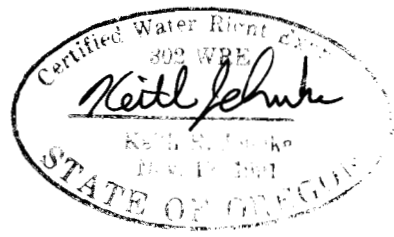 Certified Water Right Exam
302 WRE
Keith Jehnke
Keith
STATE OF OREGON